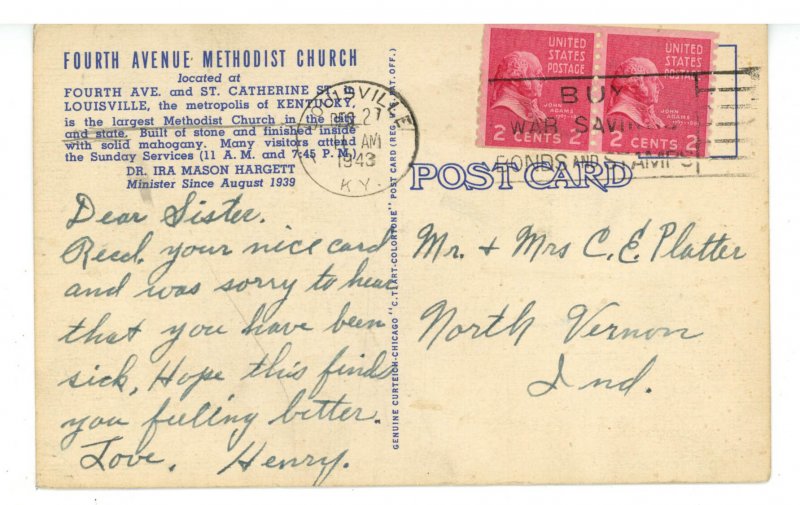 FOURTH AVENUE METHODIST CHURCH
located at
FOURTH AVE. and ST. CATHERINE ST. in
LOUISVILLE, the metropolis of KENTUCKY,
is the largest Methodist Church in the city
and state. Built of stone and finished inside
with solid mahogany. Many visitors attend
the Sunday Services (11 A. M. and 7:45 P. M.)
DR. IRA MASON HARGETT
Minister Since August 1939
Dear Sister.
Recd. your nice card
and was sorry to hear
that you have been
sick, Hope this finds
you feeling better.
Love, Henry.
GENUINE CURTEICH-CHICAGO "C.T.ART-COLORTONE" POST CARD (REG. U.S. PAT. OFF.)
LOUISVILLE
27
AM
1943
KY.
UNITED
STATES
POSTAGE
JOHN
ADAMS
2 CENTS 2
UNITED
STATES
POSTAGE
JOHN
ADAMS
2 CENTS 2
BUY
WAR SAVINGS
BONDS AND STAMPS
POST CARD
Mr. + Mrs C. E. Platter
North Vernon
Ind.